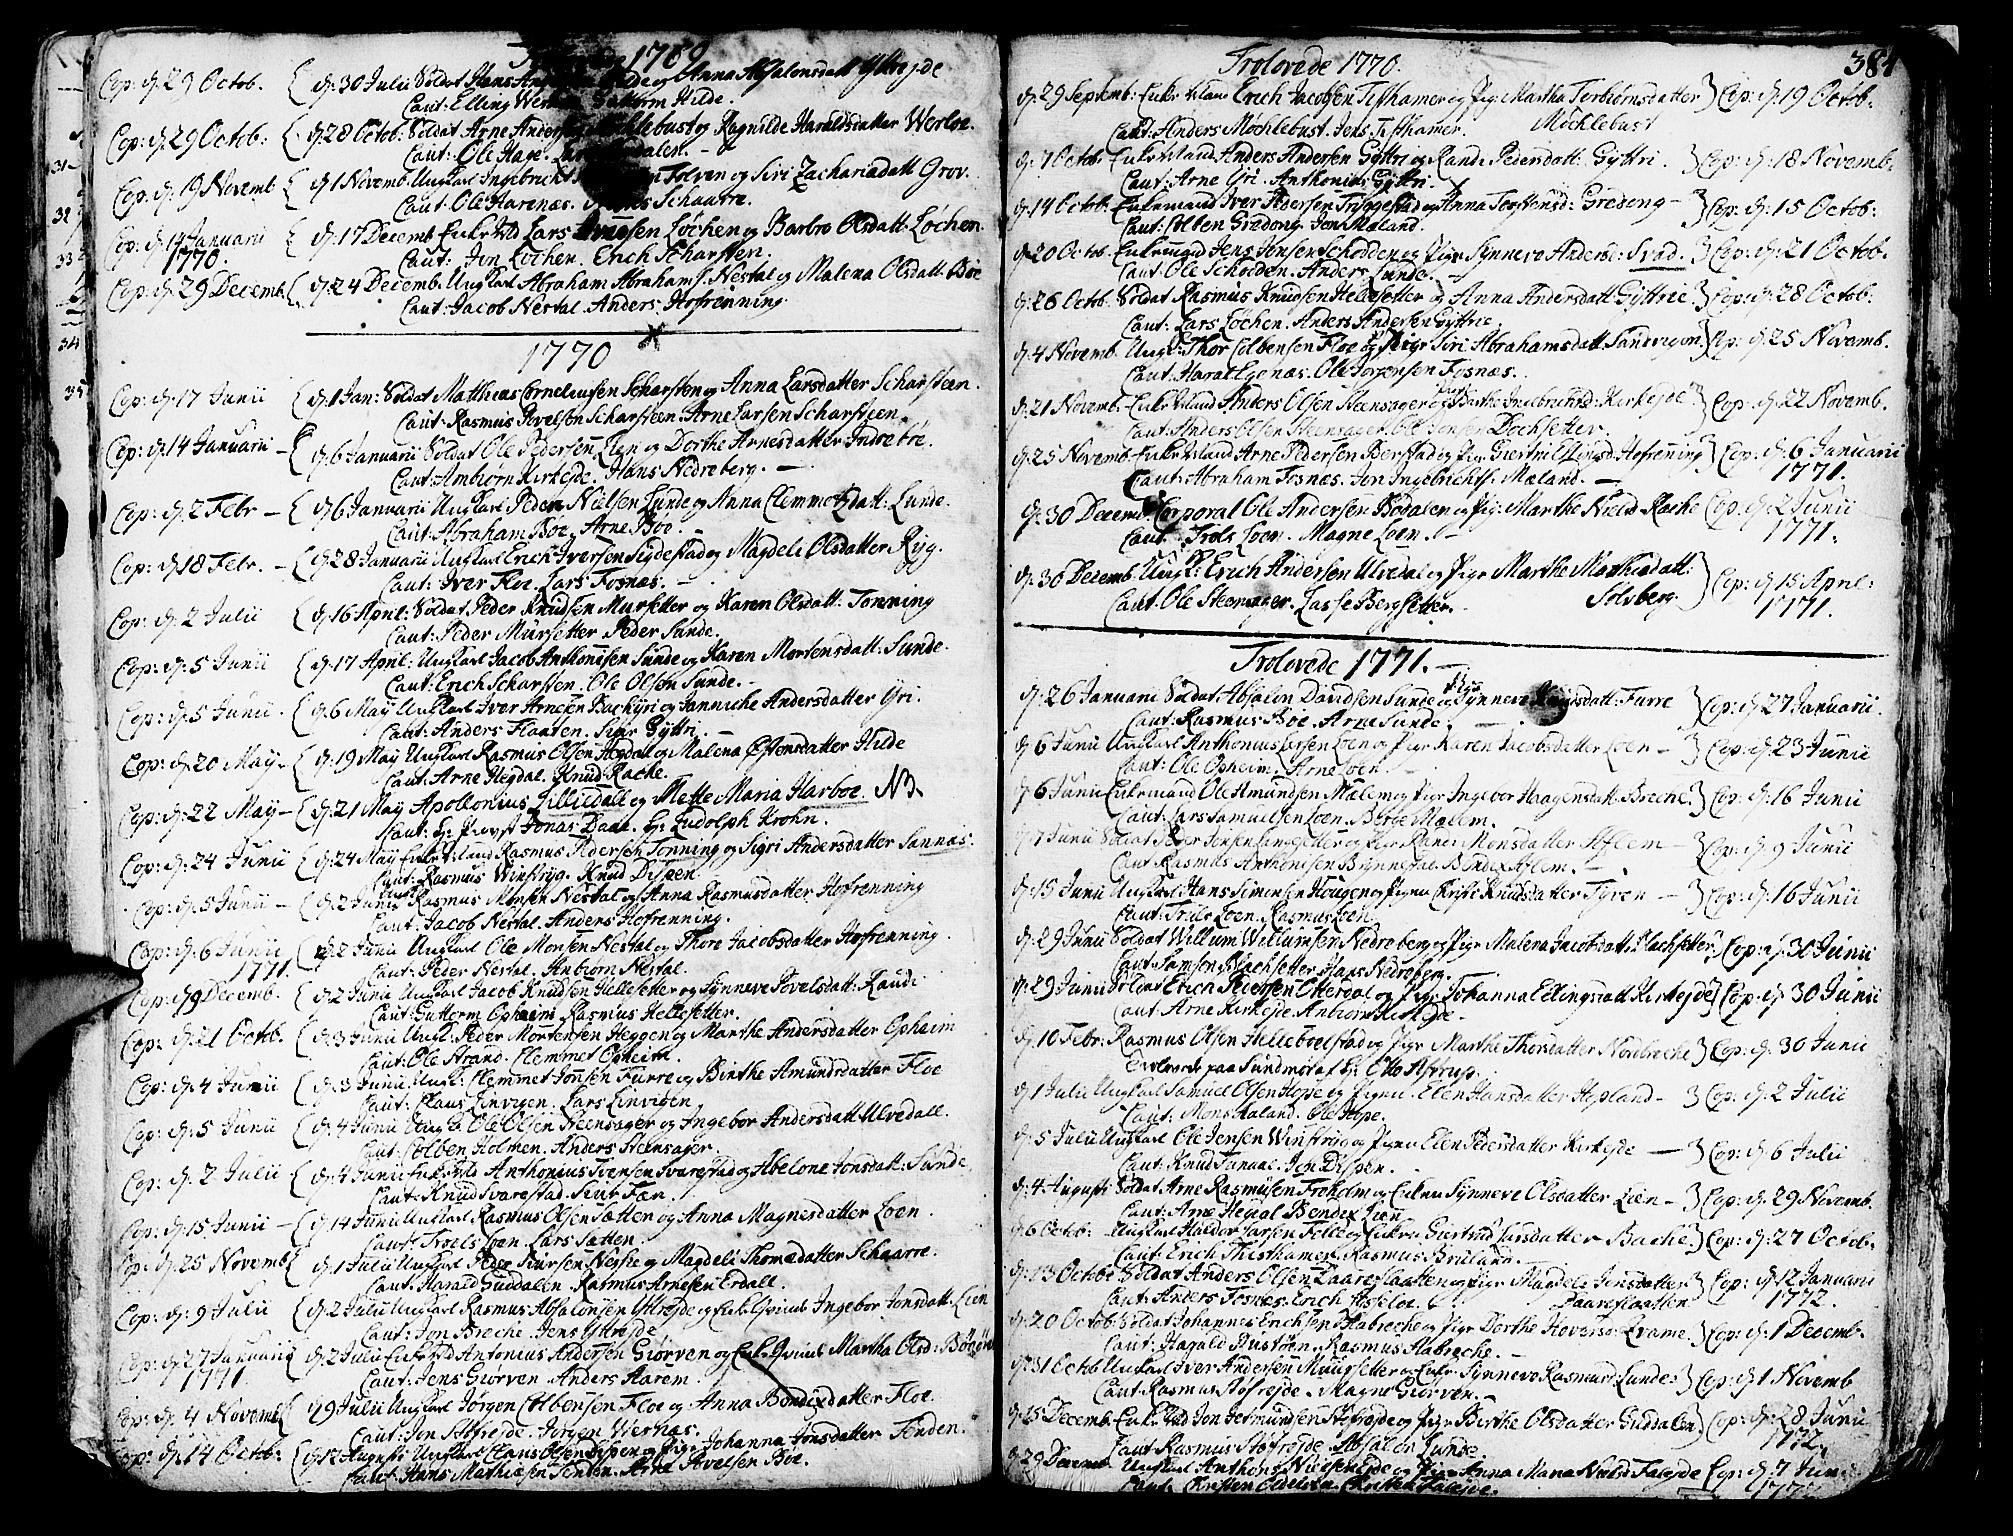 1769
Cop: d. 29 Octob. { d. 30 Julii Soldat Hans og Anna Absalonsdatt Yttrejde
Caut: Elling Guttorm Hilde.
Cop: d. 29 Octob: { d. 28 Octob: Soldat Arne Andersen Mochlebust og Ragnilde Haraldsdatter Werloe.
Caut: Ole Hage.
Cop: d. 19 Novemb { d. 1 Novemb. Ungkarl Ingebricht Tolven og Siri Zachariadatt Grov.
Caut: Ole Harenæs. Schaarre.
Cop: d. 14 Januarii { d. 17 Decemb. Enkemd Lars Løchen og Barbro Olsdatt: Løchen
1770. Caut: Jon Løchen. Erich Scharsten.
Cop: d. 29 Decemb. { d. 24 Decemb. Ungkarl Abraham Abrahams: Nestal og Malena Olsdatt: Bøe
Caut: Jacob Nestal. Anders Hofrenning
1770
Cop: d. 17 Junii { d. 1 Jan: Soldat Matthias Corneliusen Scharsten og Anna Larsdatter Scharsteen.
Caut: Rasmus Povelsen Scharsteen. Arne Larsen Scharsteen.
Cop: d. 14 Januarii - { d. 6 Januarii Soldat Ole Pedersen Elen og Dorthe Arnesdatter Indrebøe.
Caut: Ambiørn Kirkejde. Hans Nedreberg. -
Cop: d. 2 Febr - { d. 6 Januarii Ungkarl Peder Nielsen Lunde og Anna Clemmetsdatt: Lunde.
Caut: Abraham Boe. Arne Boe.
Cop: d. 18 Febr. - { d. 28 Januarii Ungkarl Erich Iversen Sigdestad og Magdeli Olsdatter Ryg.
Caut: Iver Floe. Lars Fosnæs. -
Cop: d. 2 Julii { d. 16 April: Soldat Peder Knudsen Mursetter og Karen Olsdatt: Tonning
Caut: Peder Mursetter. Peder Sunde.
Cop: d. 5 Junii { d. 17 April: Ungkarl Jacob Anthonisen Sunde og Karen Mortensdatt: Sunde.
Caut: Erich Scharsten. Ole Olsen Sunde. -
Cop: d. 5 Junii. { d. 6 May Ungkarl Iver Arnesen Bachyri og Jannicke Andersdatter Yri.
Caut: Anders Flaaten. Siur Gyttri. -
Cop: d. 20 May - { d. 19 May Ungkarl Rasmus Olsen Hegdal og Malena Østensdatter Hilde
Caut: Arne Hegdal. Knud Rache.
Cop: d. 22 May - { d. 21 May Apollonius Lilliedall og Mette Maria Harboe. NB.
Caut: Hr Provst Jonas Daae. Hr Ludolph Krohn.
Cop: d. 24 Junii { d. 24 May Enkemand Rasmus Pedersen Tonning og Sigri Andersdatter Sannæs.
Caut: Rasmus Winsryg. Knud Diseen
Cop: d. 5 Junii - { d. 2 Junii Rasmus Monsen Nestal og Anna Rasmusdatter Hofrenning
Caut: Jacob Nestal. Anders Hofrenning.
Cop: d. 6 Junii d. 2 Junii Ungkarl Ole Monsen Nestal og Thore Jacobsdatter Hofrenning.
1771. Caut: Peder Nestal. Anbiørn Nestal.
Cop: d. 9 Decemb. { d. 2 Junii Ungkarl Jacob Knudsen Hellesetter og Synneve Povelsdatt: Raudi
Caut: Guttorm Opheim. Rasmus Hellesetter.
Cop: d. 21 Octb. { d. 3 Junii Ungk: Peder Mortensen Heggen og Marthe Andersdatter Opheim
Caut: Ole Strand. Clemmet Opheim.
Cop: d. 4 Junii { d. 3 Junii Ungk: Clemmet Jonsen Furre og Birthe Amundsdatter Floe
Caut: Claus Linvigen. Lars Linvigen
Cop: d. 5 Junii { d. 4 Junii Ungk: Ole Olsen Steensager og Ingebor Andersdatt: Ulvedall.
Caut: Colben Holmen. Anders Steensager.
Cop: d. 2 Julii { d. 4 Junii Enkemd Anthonius Svensen Svarestad og Abelone Jonsdatt: Sunde.
Caut: Knud Svarestad. Siur Fæn.
Cop: d. 15 Junii - { d. 14 Junii Ungkarl Rasmus Olsen Sætten og Anna Magnesdatter Loen.
Caut: Troels Loen. Lars Sætten.
Cop: d. 25 Novemb { d. 1 Julii Ungkarl Peder Siursen Nesse og Magdeli Thomædatter Schaarre.
Caut: Harald Guddalen. Rasmus Arnesen Erdall.
Cop: d. 9 Julii { d. 2 Julii Ungkarl Rasmus Absalonsen Yttrejde og Enkeqvinde Ingebor Jonsdatt: Lien
Caut: Jon Breche. Jens Yttrejde
Cop: d. 27 Januarii { d. 2 Julii Enkemd Antonius Andersen Giørven og Enkeqvinde Martha Olsd:
1771. Caut: Jens Giørven. Anders Aarem.
Cop: d. 4 Novemb { d. 9 Julii Ungkarl Jørgen Colbensen Floe og Anna Bendixdatter Floe.
Caut: Jon Abrejde. Jørgen Wernæs.
Cop: d. 14 Octb: { d. 12 Augusti Ungkarl Claus Olsen Espen og Pige Johanna Jonsdatter Tenden.
Caut: Hans Mathiasen Tenden. Arne Povelsen Boe.
31
32
33
34
35
Trolovede 1770. 384
d. 29 Septemb: Enkemand Erich Jacobsen Tisthamer og Pige Martha Torbiørnsdatter } Cop: d. 19 Octob:
Caut: Anders Mochlebust. Jens Tisthamer. Mochlebust
d. 7 Octob. Enkemand Anders Andersen Gyttri og Rande Pedersdatt: Gyttri. } Cop: d. 18 Novemb.
Caut: Arne Yri. Anthonius Gyttri.
d. 14 Octob. Enkemand Iver Pedersen Tryggestad og Anna Torstensd: Gredong - } Cop: d. 15 Octob:
Caut: Colben Gredong. Jon Mæland.
d. 20 Octob. Enkemand Jens Jonsen Schodden og Pige Synneve Andersd: Svad. } Cop: d. 21 Octob.
Caut: Ole Schodden. Anders Lunde. -
d. 26 Octob. Soldat Rasmus Knudsen Hellesetter og Anna Andersdatt Gyttrie } Cop: d. 28 Octob:
Caut: Lars Løchen. Anders Andersen Gyttrie.
d. 4 Novemb. Ungk: Thor Colbensen Floe og Pige Siri Abrahamsdatt. } Cop: d. 25 Novemb.
Caut: Haral Egenæs. Ole Jorgensen Fosnæs.
d. 21 Novemb: Enkemand Anders Olsen Steensager og Birthe Ingebrichtsd: Kirkejde } Cop: d. 22 Novemb.
Caut: Anders Olsen Steensager. Ole Jonsen Dochsetter.
d. 25 Novemb. Enkemand Arne Pedersen Berstad og Pige Giertrue Ellingsd: Hofrenning } Cop: d. 6 Januarii
Caut: Abraham Fosnæs. Jon Ingebrichts: Mæland. - 1771.
d. 30 Decemb. Corporal Ole Andersen Bødalen og Pige: Marthe Nielsd: Rache Cop: d. 2 Junii
Caut: Trols Loen. Magne Loen. - 1771.
d. 30 Decemb. Ungk: Erich Andersen Ulvedal og Pige Marthe Mathiasdatt: } Cop: d. 15 April:
Caut: Ole Steensager. Lasse Bergsetter. Solvberg. 1771.
Trolovede 1771. -
d. 26 Januarii Soldat Absalon Davidsen Sunde og Pige Synneve Furre } Cop: d. 27 Januarii.
Caut: Rasmus Boe. Arne Sunde. -
d. 6 Junii Ungkarl Anthonius Larsen Loen og Pige Karen Jacobsdatter Loen - } Cop: d. 23 Junii
Caut: Ole Opheim. Arne Loen. -
d. 6 Junii Enkemand Ole Amundsen Mælem og Pige Ingebor Haagensdatt. Breche. } Cop: d. 16 Junii
Caut: Lars Samuelsen Loen. Børge Mælem.
d. 7 Junii Soldat Peder Jensen og Pige Rande Monsdatter Aflem - } Cop: d. 9 Junii
Caut: Rasmus Anthonisen Brynnestad. Bendix Aflem. -
d. 15 Junii Ungkarl Hans Simensen Hougen og Pigen Christi Knudsdatter Tyren - } Cop: d. 16 Junii
Caut: Truls Loen. Rasmus Loen.
d. 29 Junii Soldat Willum Willumsen Nedreberg og Pige Malena Jacobsdatt: Blachsetter } Cop: d. 30 Junii
Caut: Samson Blachsetter. Hans Nedreberg.
d. 29 Junii Soldat Erich Pedersen Otterdal og Pige Johanna Ellingsdatt Kirkejde } Cop: d. 30 Junii
Caut: Arne Kirkejde. Anbiørn Kirkejde. -
d. 10 Febr: Rasmus Olsen Helleboelstad og Pige Marthe Thorsdatter Nordbreche } Cop: d. 30 Junii
Trolovede paa Sundmør af Hr Otto Astrup.
d. 1 Julii Ungkarl Samuel Olsen Hope og Pigen Elen Hansdatter Hopland - } Cop: d. 2 Julii
Caut: Mons Aaland. Ole Hope.
d. 5 Julii Ungkarl Ole Jensen Winsryg og Pigen Elen Pedersdatter Kirkejde - } Cop: d. 6 Julii
Caut: Knud Sunde. Jon Diseen.
d. 4 Augusti Soldat Arne Rasmusen Froholm og Enken Synneve Olsdatter Lien - } Cop: d. 29 Novemb.
Caut: Arne Hegdal. Bendix Lien
d. 6 Octob: Ungkarl Haldor Larsen Felle og Enken Giertrud Larsdatter Bache } Cop: d. 27 Octob:
Caut: Erich Thisthamer. Rasmus Bruland.
d. 13 Octob. Soldat Anders Olsen Laareflaatten og Pige Magdeli Jensdatter } Cop: d. 12 Januarii
Caut: Anders Fosnæs. Erich Laareflaatten 1772.
d. 20 Octob: Soldat Johannes Erichsen Aabreche og Pige Dorthe Hoversd: Qvame } Cop: d. 1 Decemb.
Caut: Rustøen. Rasmus Aabreche. -
d. 31 Octob Ungkarl Iver Andersen Muursetter og Enken Synneve Rasmusd: Lunde: } Cop: d. 1 Novemb
Caut: Rasmus Støfrejde. Magne Giørven. -
d. 15 Decemb. Enkemd Jon Jetmundsen Støfrejde og Pige Birthe Olsdatter Guddalen } Cop: d. 28 Junii
Caut: Rasmus Støfrejde. Absalon Sunde 1772.
d. 29 Decemb. Ungkarl Anthoni Nielsen og Pige Anna Maria Nielsd: Faleide Cop: d. 7 Junii
Caut: Christen Christen Faleide. 1772